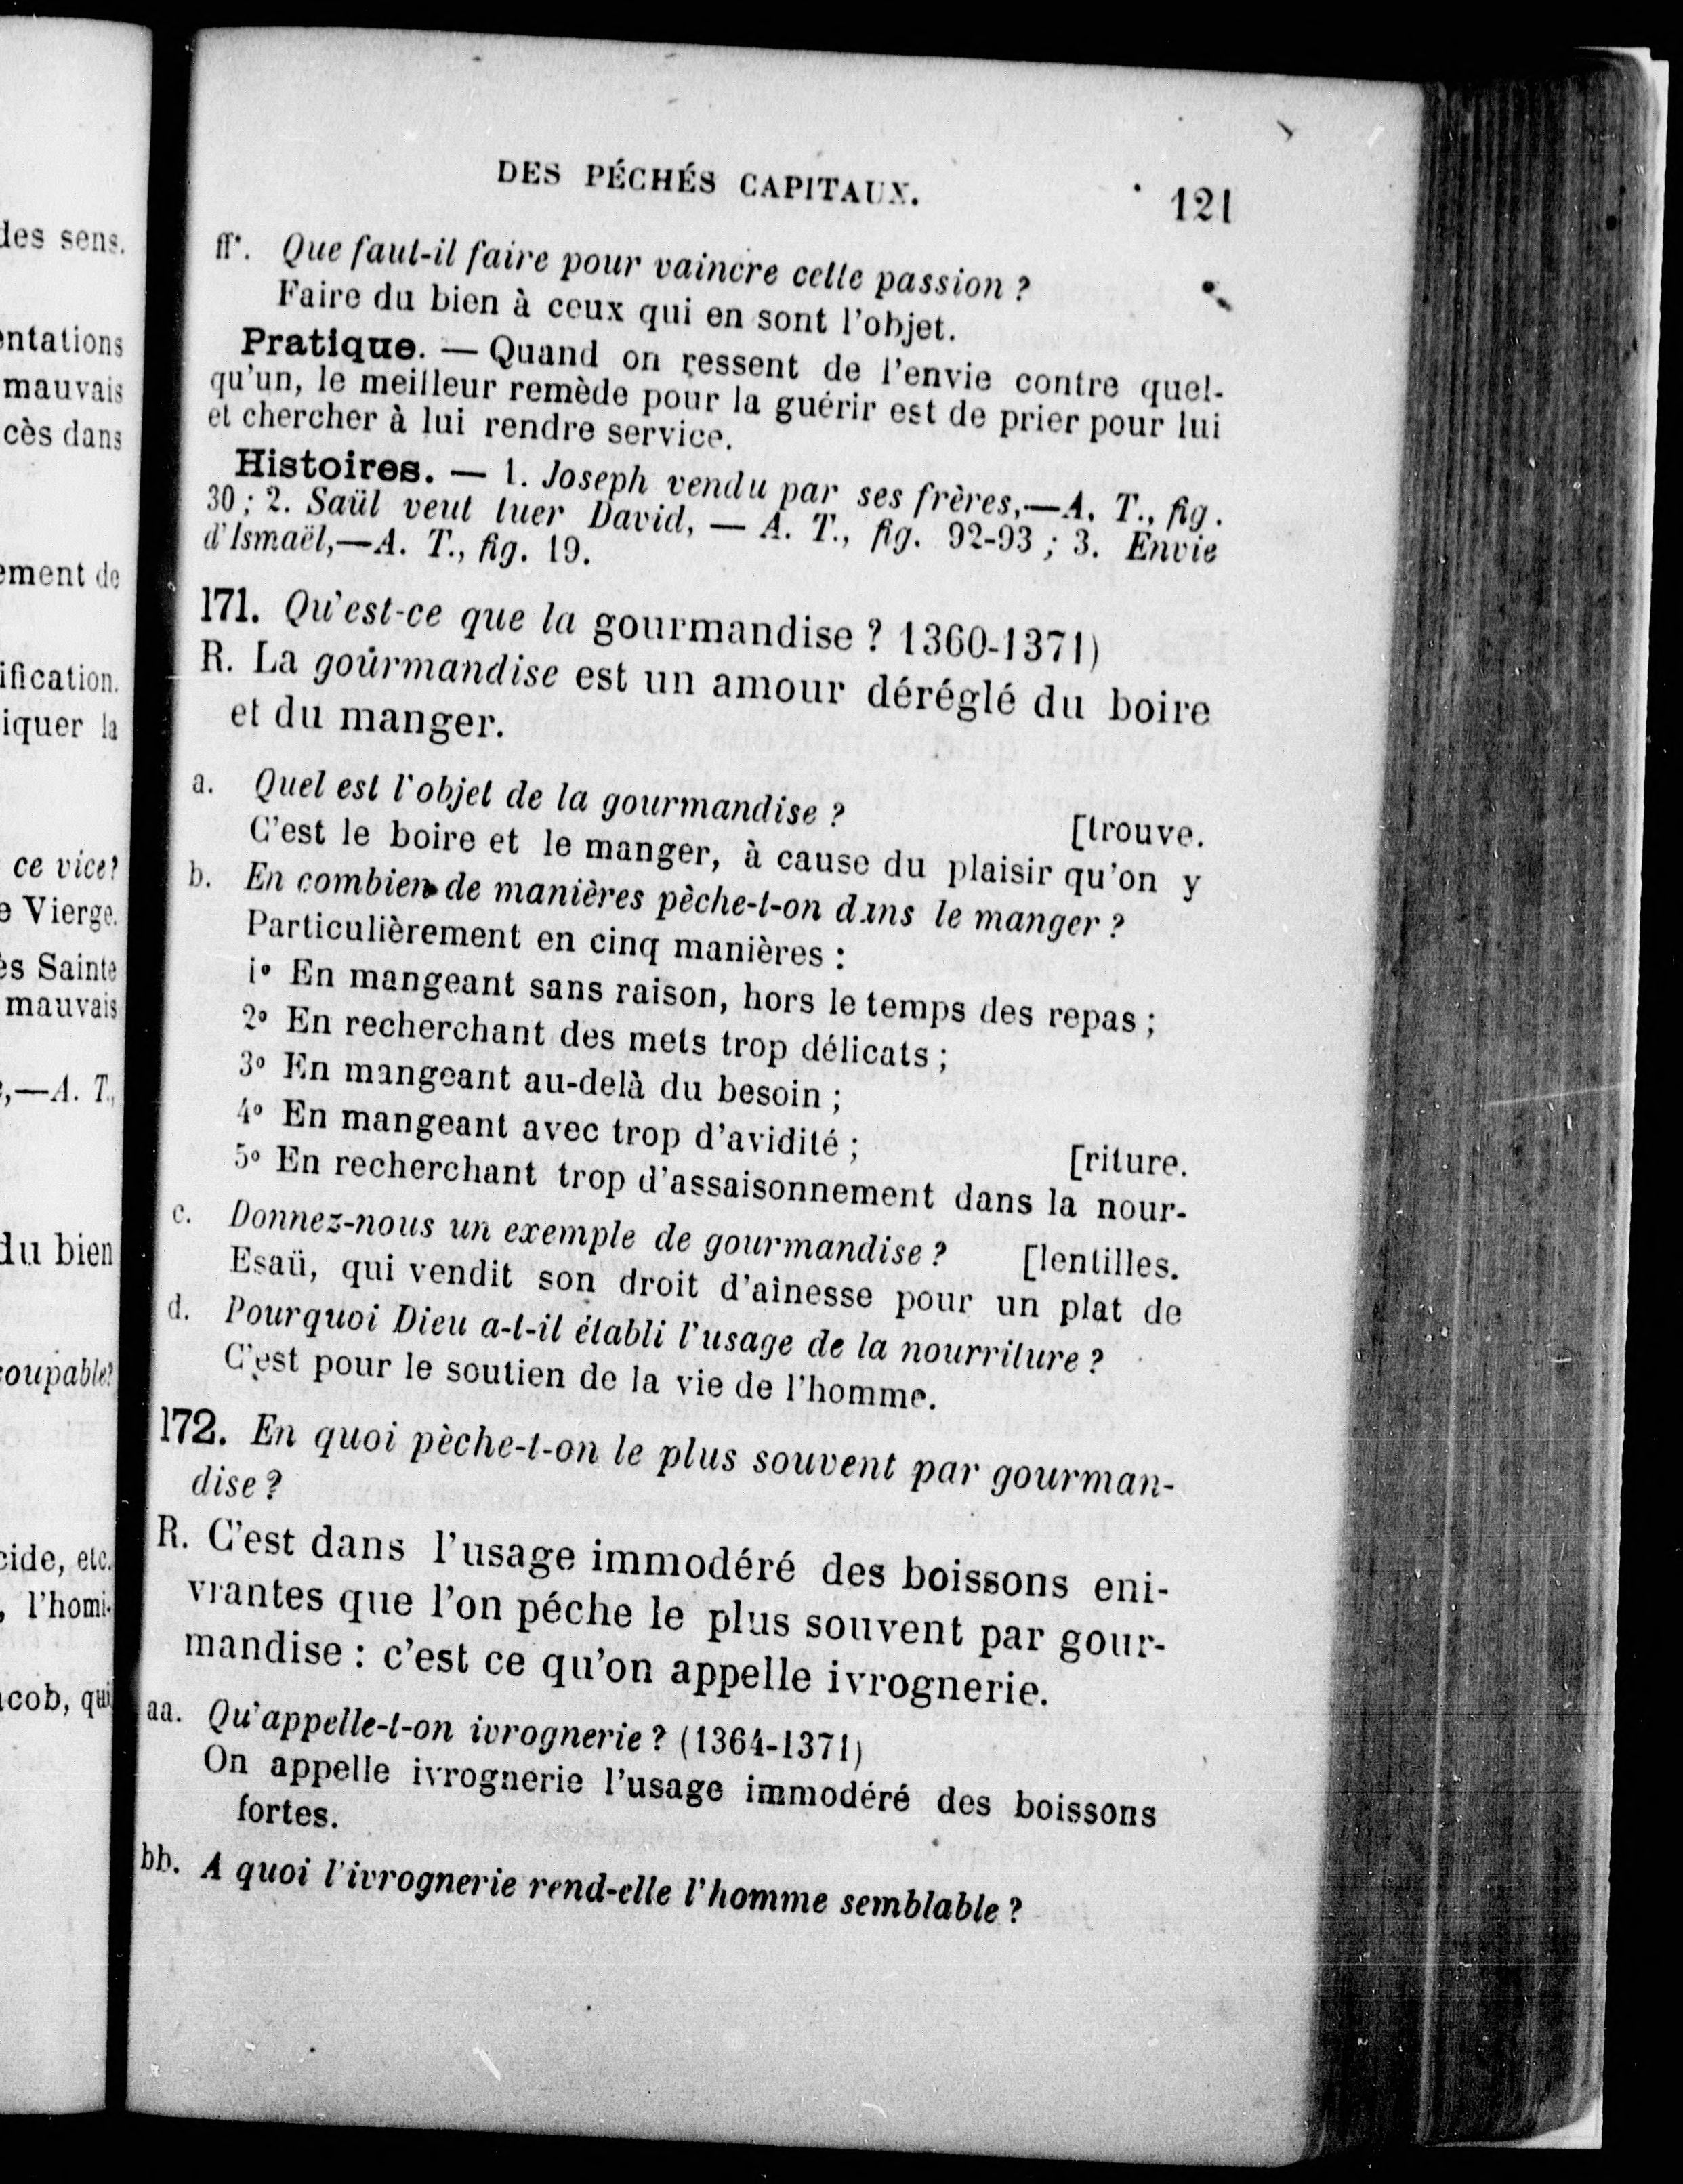 des sens.
entations
mauvais
cès dans
ement de
ification.
iquer la
ce vice?
e Vierge.
ès Sainte
mauvais
,—A. T.,
du bien
coupable?
cide, etc.
, l'homi-
acob, qui
DES PÉCHÉS CAPITAUX. 121
ff. Que faut-il faire pour vaincre cette passion ?
Faire du bien à ceux qui en sont l'objet.
Pratique. — Quand on ressent de l'envie contre quel-
qu'un, le meilleur remède pour la guérir est de prier pour lui
et chercher à lui rendre service.
Histoires. — 1. Joseph vendu par ses frères,—A. T., fig.
30 ; 2. Saül veut tuer David, — A. T., fig. 92-93 ; 3. Envie
d'Ismaël,—A. T., fig. 19.
171. Qu'est-ce que la gourmandise ? 1360-1371)
R. La gourmandise est un amour déréglé du boire
et du manger.
a. Quel est l'objet de la gourmandise ? [trouve.
C'est le boire et le manger, à cause du plaisir qu'on y
b. En combien de manières pèche-t-on dans le manger ?
Particulièrement en cinq manières :
1° En mangeant sans raison, hors le temps des repas ;
2° En recherchant des mets trop délicats ;
3° En mangeant au-delà du besoin ;
4° En mangeant avec trop d'avidité ; [riture.
5° En recherchant trop d'assaisonnement dans la nour-
c. Donnez-nous un exemple de gourmandise ? [lentilles.
Esaü, qui vendit son droit d'aînesse pour un plat de
d. Pourquoi Dieu a-t-il établi l'usage de la nourriture ?
C'est pour le soutien de la vie de l'homme.
172. En quoi pèche-t-on le plus souvent par gourman-
dise ?
R. C'est dans l'usage immodéré des boissons eni-
vrantes que l'on péche le plus souvent par gour-
mandise : c'est ce qu'on appelle ivrognerie.
aa. Qu'appelle-t-on ivrognerie ? (1364-1371)
On appelle ivrognerie l'usage immodéré des boissons
fortes.
bb. A quoi l'ivrognerie rend-elle l'homme semblable ?